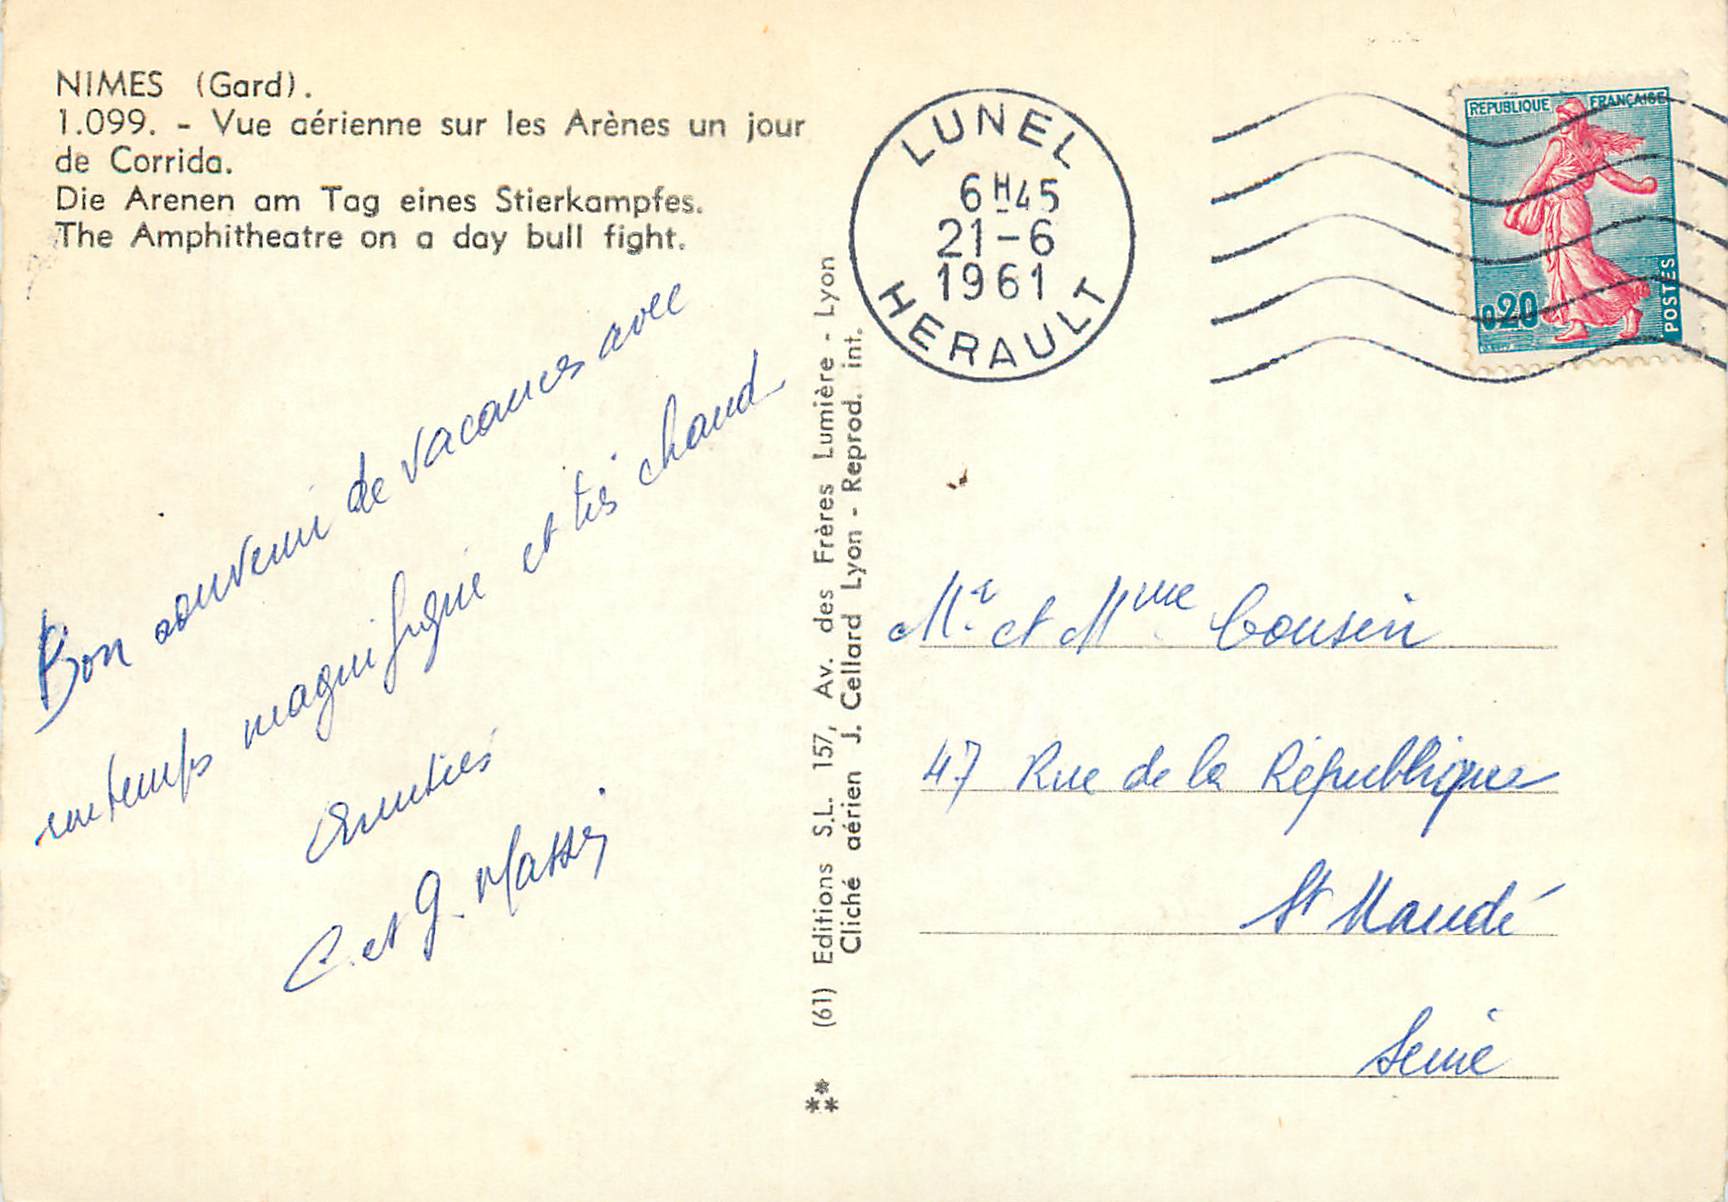 NIMES (Gard).
1.099. - Vue aérienne sur les Arènes un jour
de Corrida.
Die Arenen am Tag eines Stierkampfes.
The Amphitheatre on a day bull fight.
Bon souvenir de vacances avec
un temps magnifique et très chaud
Amitiés
C. et G. Massé
(61) Editions S.L. 157, Av. des Frères Lumière - Lyon
Cliché aérien J. Cellard Lyon - Reprod. int.
LUNEL
6H45
21-6
1961
HERAULT
REPUBLIQUE FRANÇAISE
0,20
POSTES
Mr. et Mme Cousin
47 Rue de la République
St Mandé
Seine